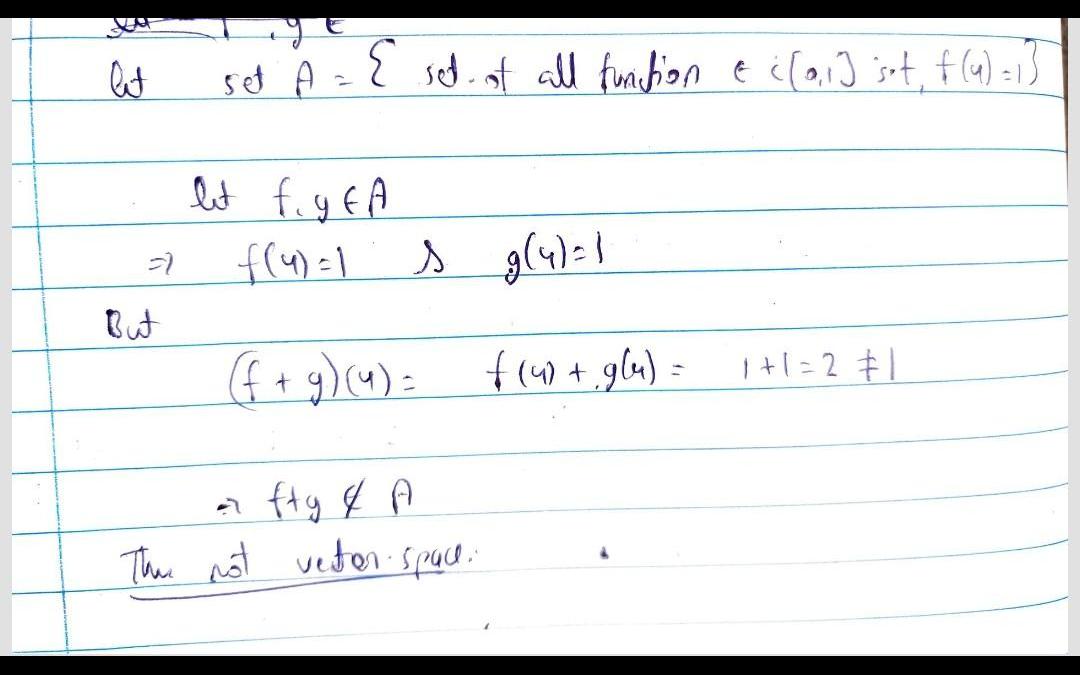 let set A = { set of all function ∈ c[0,1] s.t, f(4)=1}
let f, g ∈ A
⇒ f(4)=1 & g(4)=1
But
(f + g)(4) = f(4) + g(4) = 1+1=2 ≠ 1
⇒ f+g ∉ A
Thus not vector space.